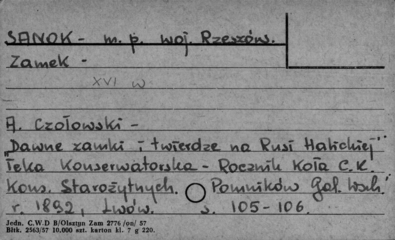 SANOK - m. p. woj. Rzeszów.
Zamek -
XVI w
A. Czołowski -
"Dawne zamki i twierdze na Rusi Halickiej"
Teka Konserwatorska - Rocznik Koła C.K.
Kons. Starożytnych. Pomników Gal. Wsch.
r. 1892, Lwów. s. 105-106.
Jedn. C.W.D B/Olsztyn Zam 2776 /on/ 57
Błtk. 2563/57 10.000 szt. karton kl. 7 g 220.